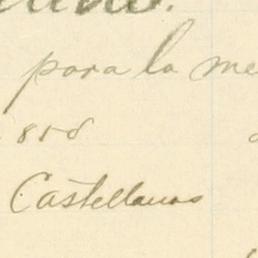 para la me
818
Castellanos